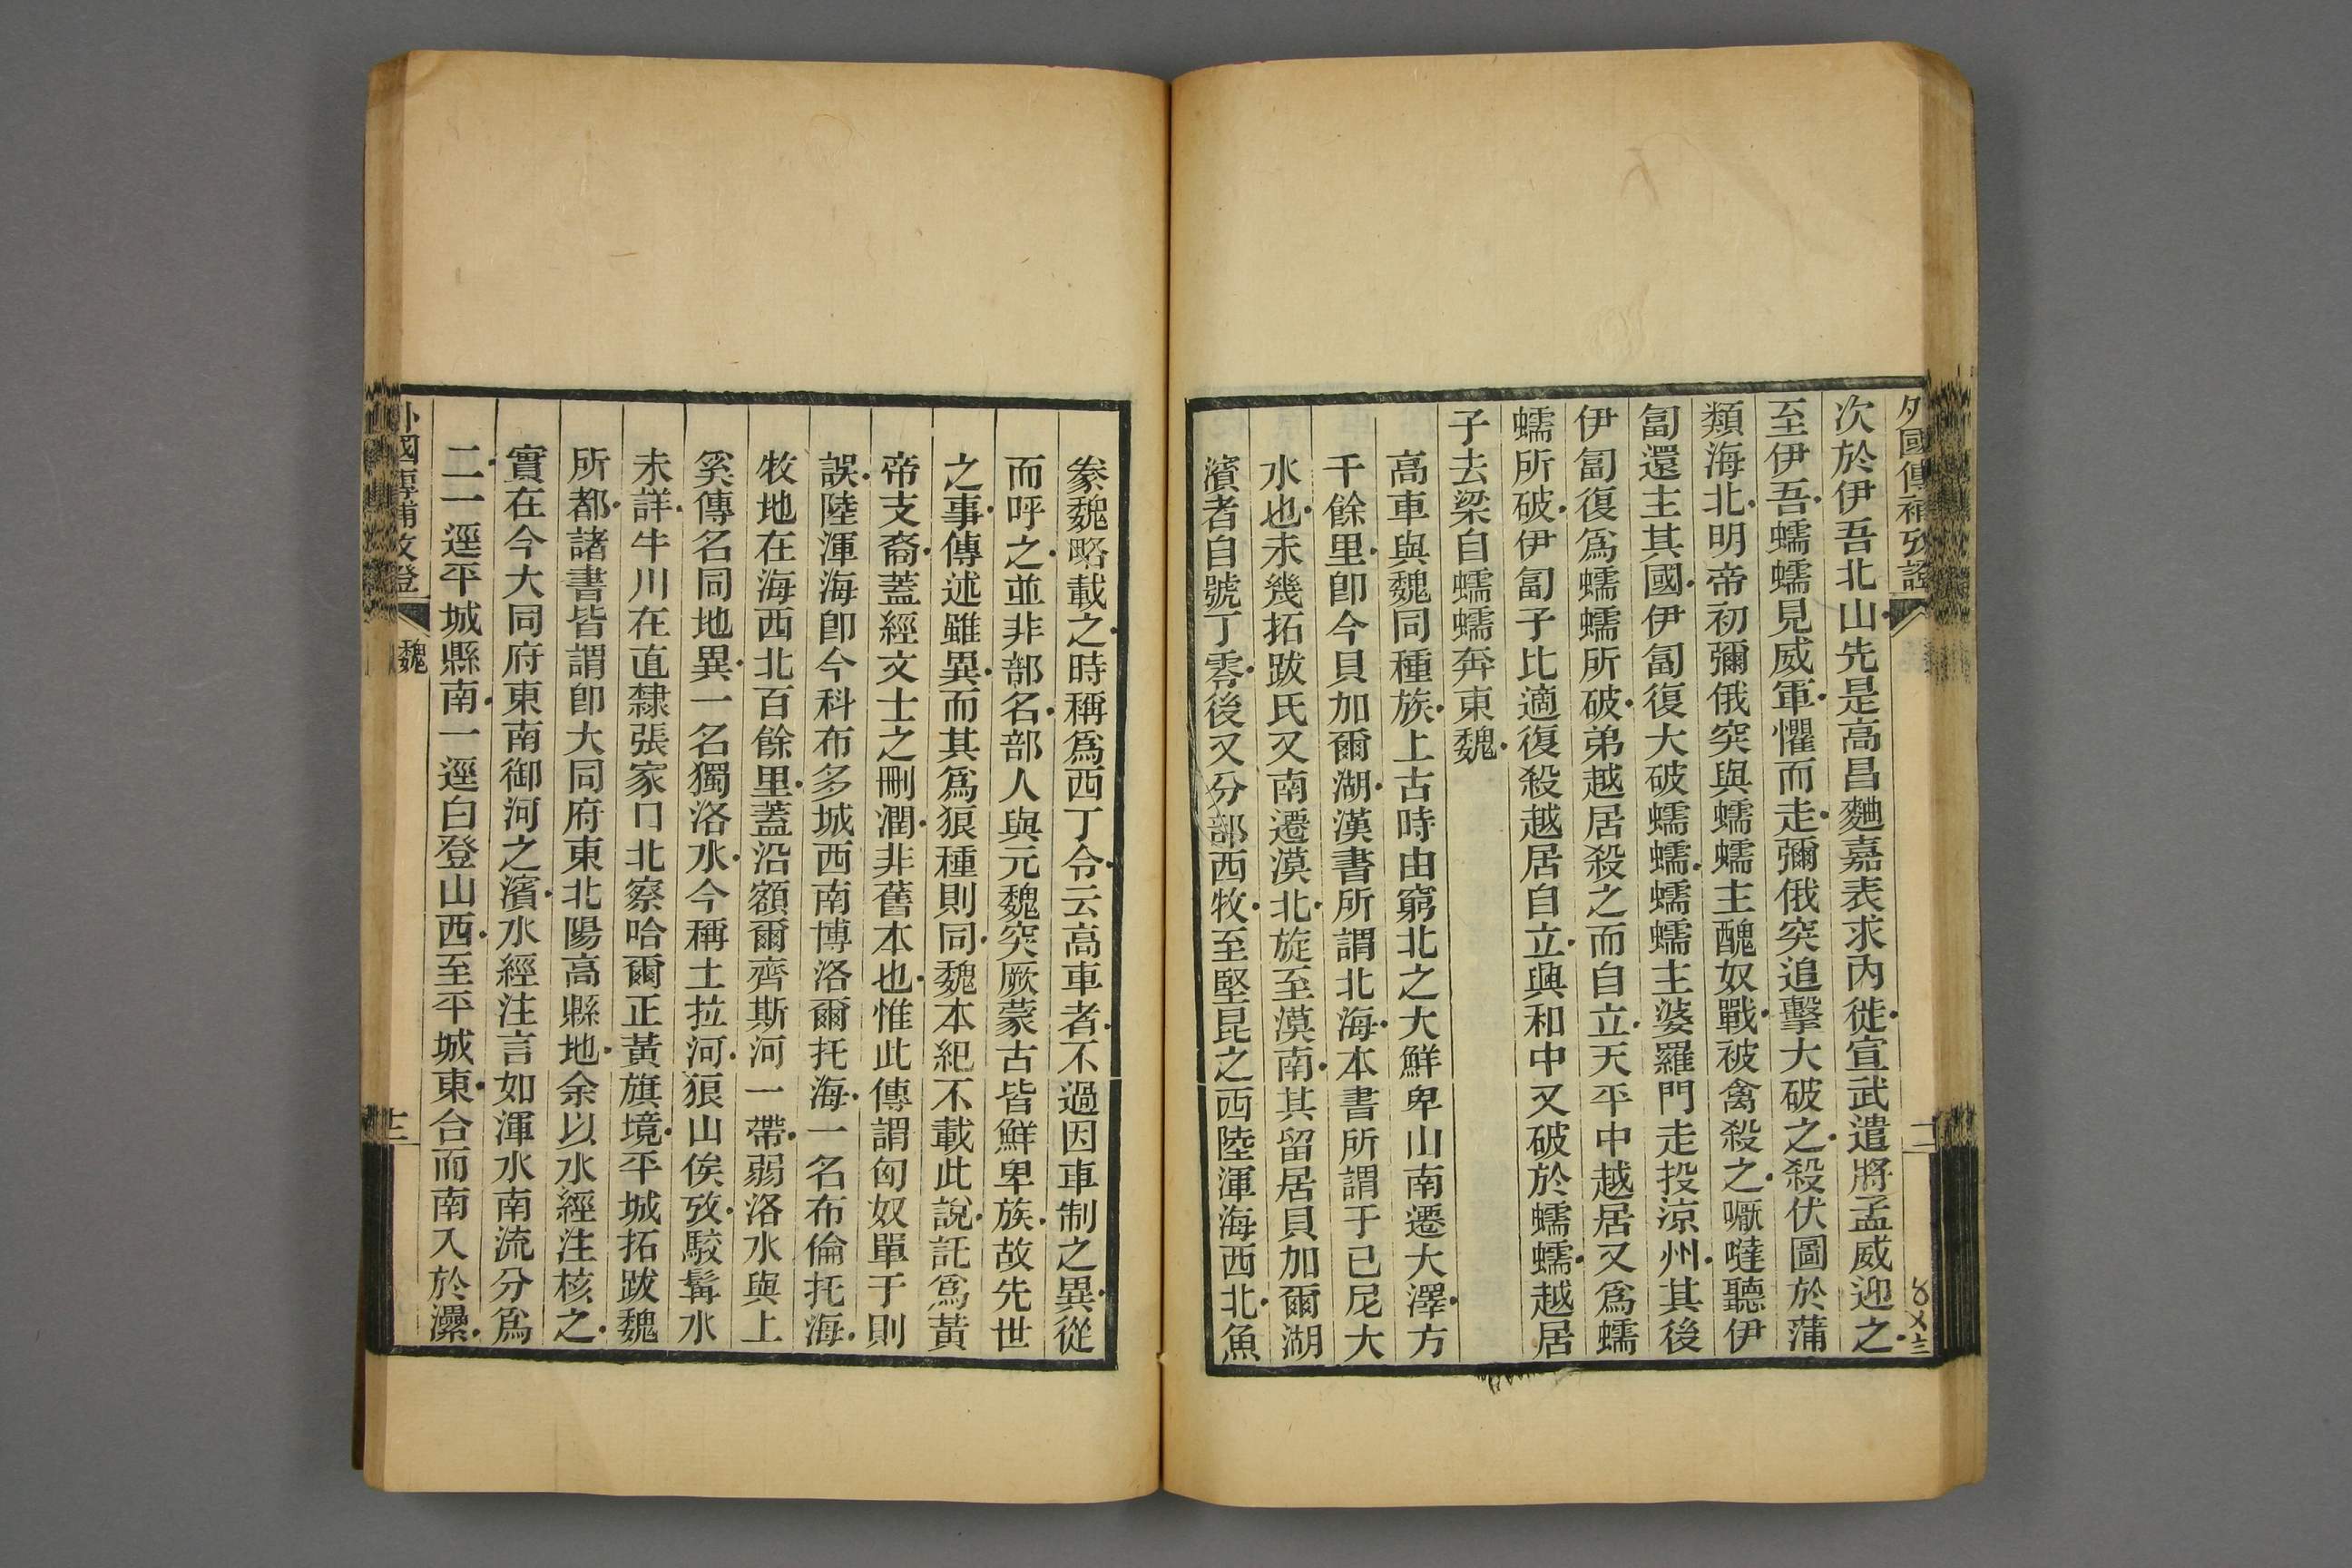 外國傳補攷證
二
次於伊吾北山先是高昌麴嘉表求內徙宣武遣將孟威迎之
至伊吾蠕蠕見威軍懼而走彌俄突追擊大破之殺伏圖於蒲
類海北明帝初彌俄突與蠕蠕主醜奴戰被禽殺之嚈噠聽伊
匐還主其國伊匐復大破蠕蠕蠕蠕主婆羅門走投涼州其後
伊匐復爲蠕蠕所破弟越居殺之而自立天平中越居又爲蠕
蠕所破伊匐子比適復殺越居自立興和中又破於蠕蠕越居
子去梁自蠕蠕奔東魏
高車與魏同種族上古時由窮北之大鮮卑山南遷大澤方
千餘里卽今貝加爾湖漢書所謂北海本書所謂于已尼大
水也未幾拓跋氏又南遷漠北旋至漠南其留居貝加爾湖
濱者自號丁零後又分部西牧至堅昆之西陸渾海西北魚
豢魏略載之時稱爲西丁令云高車者不過因車制之異從
而呼之並非部名部人與元魏突厥蒙古皆鮮卑族故先世
之事傳述雖異而其爲狼種則同魏本紀不載此說託爲黃
帝支裔蓋經文士之刪潤非舊本也惟此傳謂匈奴單于則
誤陸渾海卽今科布多城西南博洛爾托海一名布倫托海
牧地在海西北百餘里蓋沿額爾齊斯河一帶弱洛水與上
奚傳名同地異一名獨洛水今稱土拉河狼山俟攷駮髯水
未詳牛川在直隸張家口北察哈爾正黃旗境平城拓跋魏
所都諸書皆謂卽大同府東北陽高縣地余以水經注核之
實在今大同府東南御河之濱水經注言如渾水南流分爲
二一逕平城縣南一逕白登山西至平城東合而南入於灅
外國傳補攷證
魏